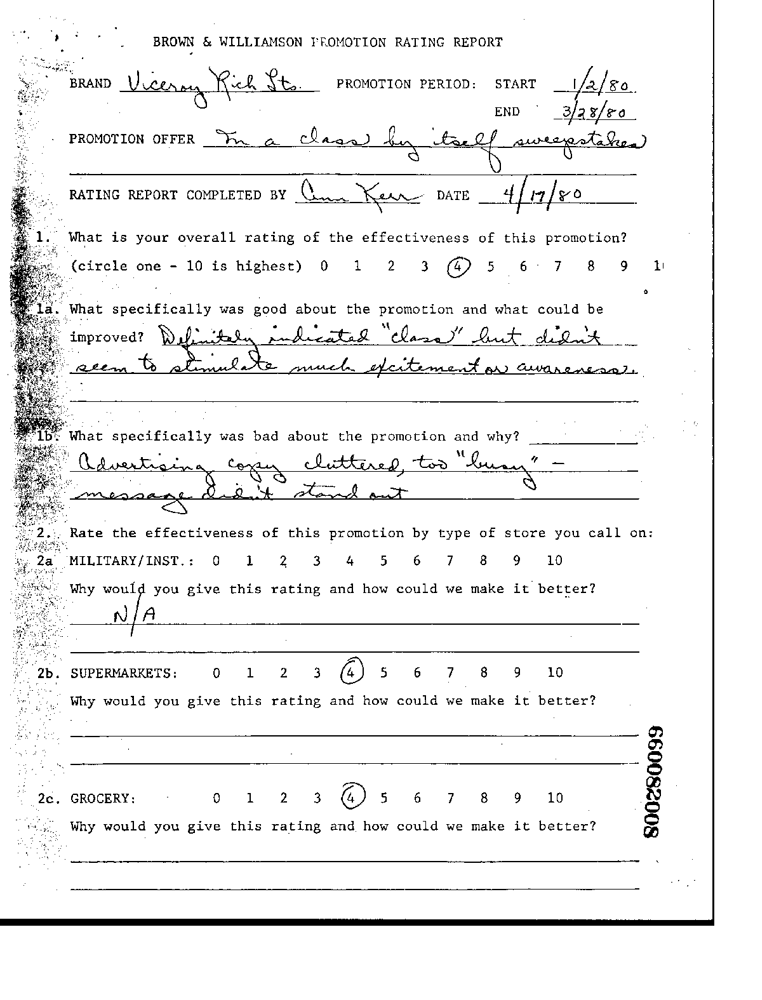 BROWN & WILLIAMSON PROMOTION RATING REPORT
BRAND Viceroy Rich Lts. PROMOTION PERIOD: START 1/2/80
END 3/28/80
PROMOTION OFFER In a class by itself sweepstakes
RATING REPORT COMPLETED BY Ann Kerr DATE 4/17/80
1. What is your overall rating of the effectiveness of this promotion?
(circle one - 10 is highest) 0 1 2 3 4 5 6 7 8 9 10
1a. What specifically was good about the promotion and what could be
improved? Definitely indicated "class" but didn't
seem to stimulate much excitement or awareness.
1b. What specifically was bad about the promotion and why?
Advertising copy cluttered, too "busy" -
message didn't stand out
2. Rate the effectiveness of this promotion by type of store you call on:
2a MILITARY/INST.: 0 1 2 3 4 5 6 7 8 9 10
Why would you give this rating and how could we make it better?
N/A
2b. SUPERMARKETS: 0 1 2 3 4 5 6 7 8 9 10
Why would you give this rating and how could we make it better?
2c. GROCERY: 0 1 2 3 4 5 6 7 8 9 10
Why would you give this rating and how could we make it better?
660082008